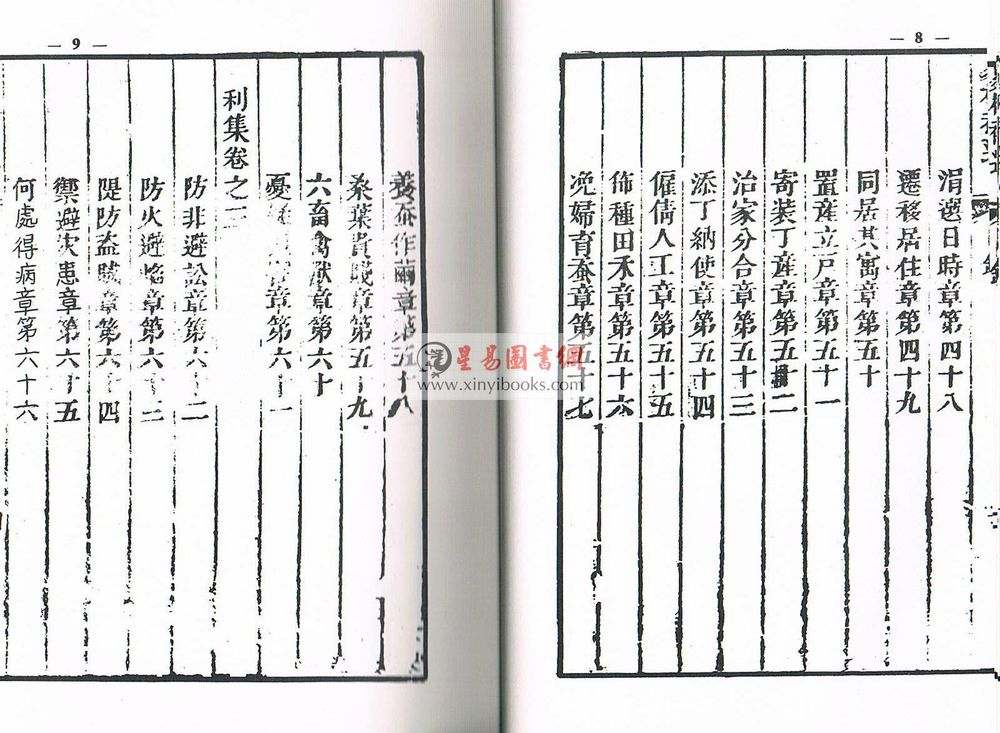 — 8 —
涓選日時章第四十八
遷移居住章第四十九
同居共寓章第五十
置產立戶章第五十一
寄裝丁產章第五十二
治家分合章第五十三
添丁納使章第五十四
僱倩人工章第五十五
佈種田禾章第五十六
浼婦育蚕章第五十七
— 9 —
養蚕作繭章第五十八
桑葉貴賤章第五十九
六畜禽獸章第六十
憂章第六十一
利集卷之三
防非避訟章第六十二
防火避焰章第六十三
隄防盜賊章第六十四
禦避灾患章第六十五
何處得病章第六十六
星易圖書網
www.xinyibooks.com